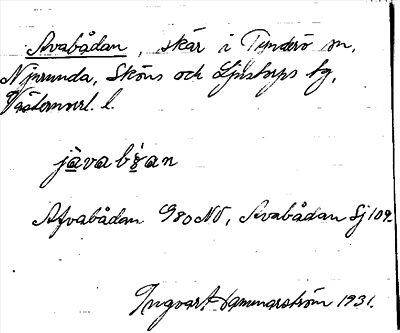 Avabådan, skär i Tynderö sn,
Njurunda, Sköns och Ljustorps tg,
Västernorrl. l.
java b an
Afvabådan G80NO, Avabådan Sj 109.
Ingvar Hammarström 1931.